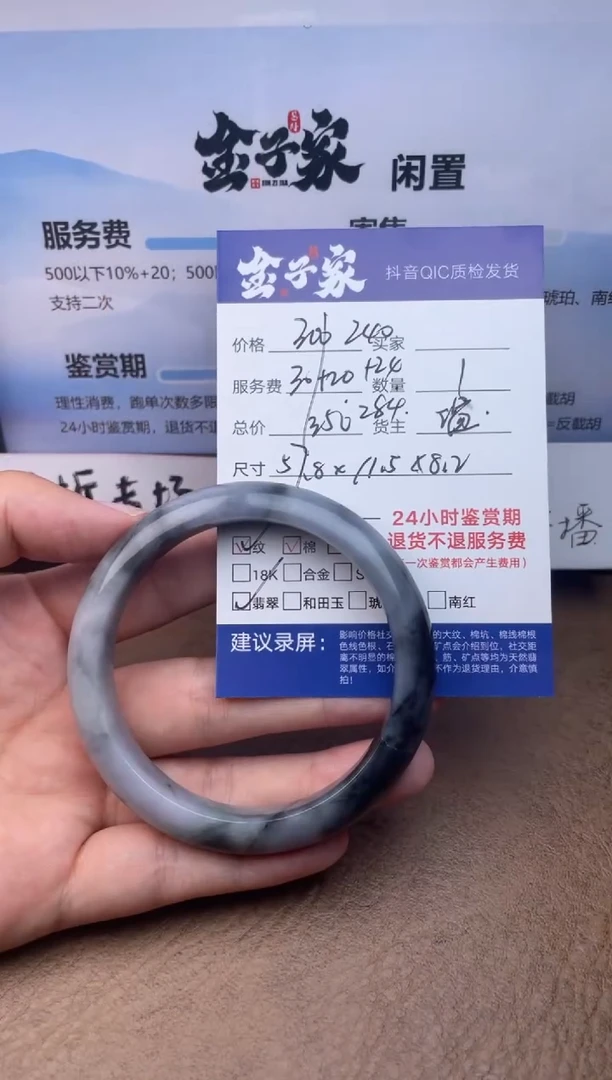 金子家 闲置
服务费
500以下10%+20；500
支持二次
鉴赏期
理性消费，跑单次数多限
24小时鉴赏期，退货不退
琥珀、南红
截胡
=反截胡
播
金子家 抖音QIC质检发货
价格 300 240 买家
服务费 30+20 +24 数量 1
总价 350 284. 货主
尺寸 57.8×11.5×8.2
24小时鉴赏期
退货不退服务费
一次鉴赏都会产生费用）
纹 棉
18K 合金 S
翡翠 和田玉 琥 南红
建议录屏：
影响价格社交 的大纹、棉坑、棉线棉根
色线色根、石 矿点会介绍到位，社交距
离不明显的棉 、筋、矿点等均为天然翡
翠属性，如介 不作为退货理由，介意慎
拍！